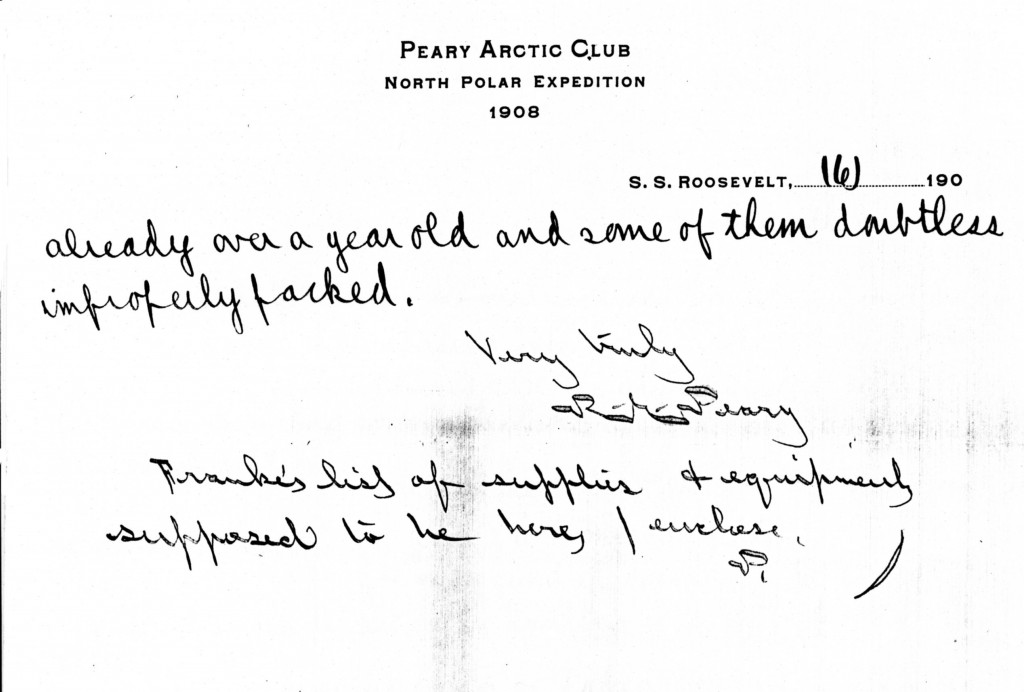 PEARY ARCTIC CLUB
NORTH POLAR EXPEDITION
1908
S. S. ROOSEVELT, (6) 190
already over a year old and some of them doubtless
improperly packed.
Very truly
R. E. Peary
Franke's list of supplies & equipment
supposed to be here, I enclose.
P.